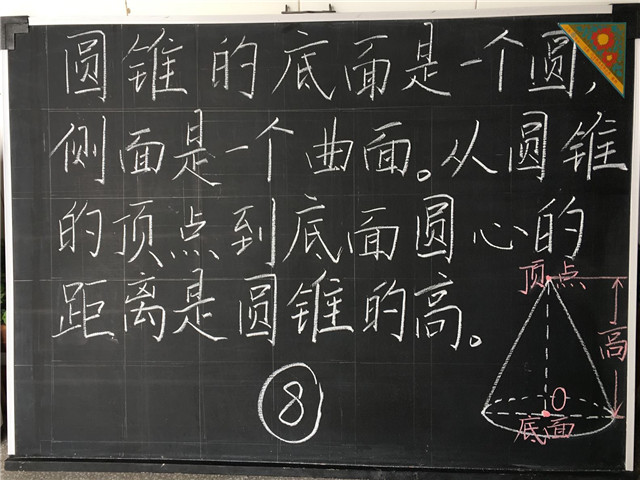 圆锥的底面是一个圆,
侧面是一个曲面。从圆锥
的顶点到底面圆心的
距离是圆锥的高。
顶点
高
O
底面
8